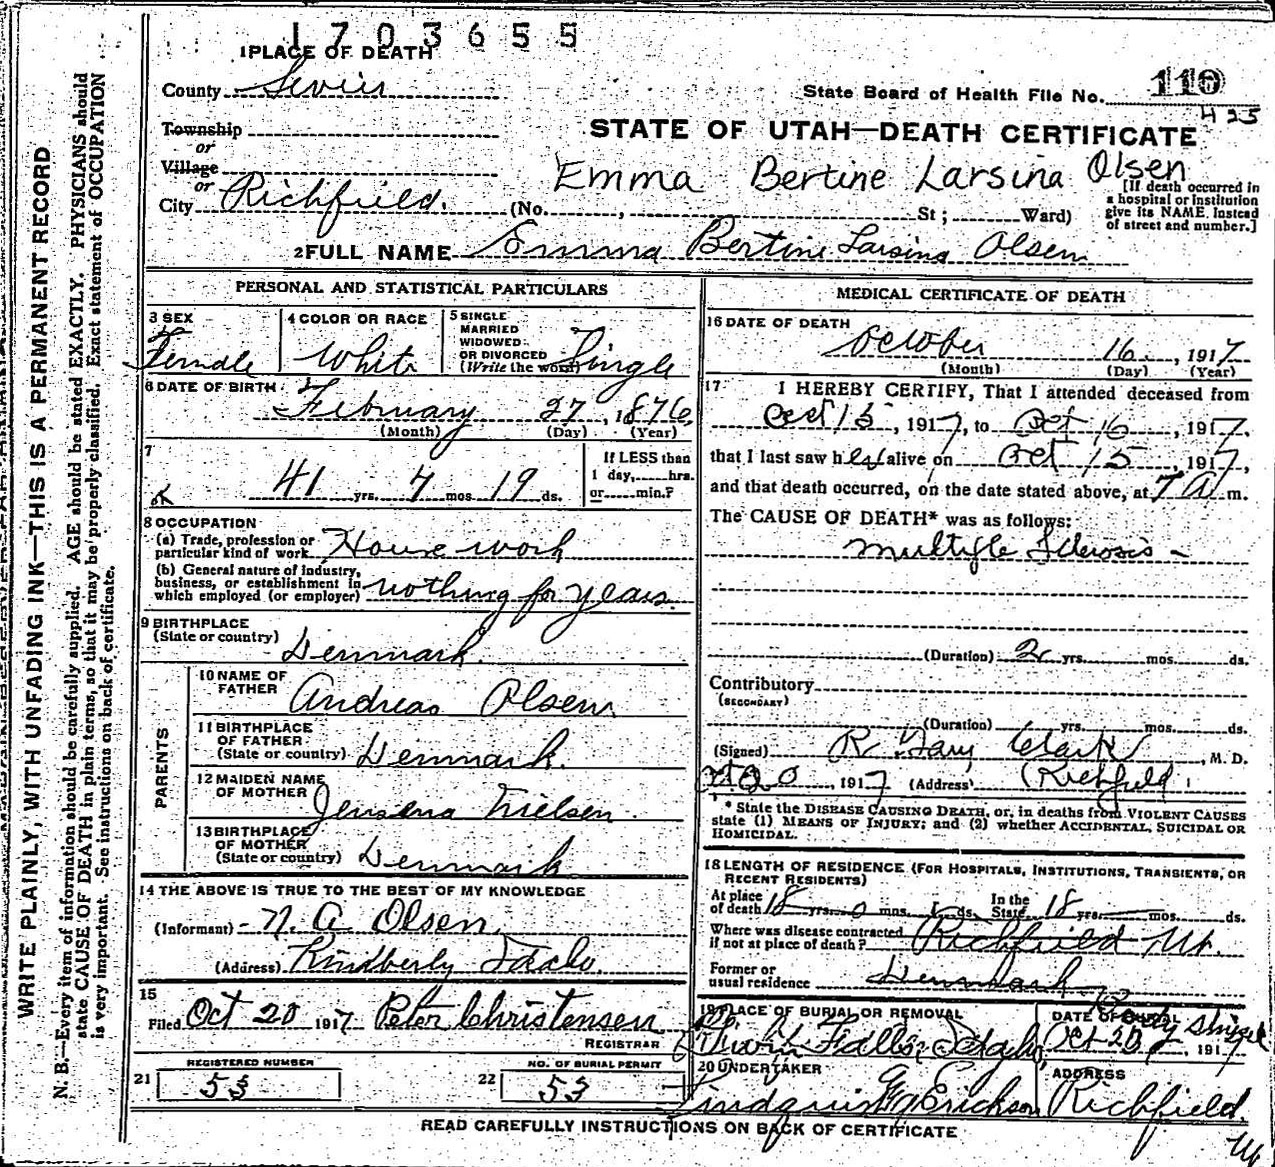 1703655
1 PLACE OF DEATH
County Sevier
State Board of Health File No. 110
425
Township
or
STATE OF UTAH—DEATH CERTIFICATE
Village
or
Emma Bertine Larsina Olsen
City Richfield. (No. , St ; Ward)
[If death occurred in
a hospital or institution
give its NAME, instead
of street and number.]
2 FULL NAME Emma Bertine Larsina Olsen
PERSONAL AND STATISTICAL PARTICULARS
3 SEX
Female
4 COLOR OR RACE
White
5 SINGLE
MARRIED
WIDOWED
OR DIVORCED
(Write the word) Single
6 DATE OF BIRTH
February 27, 1876
(Month) (Day) (Year)
7
41 yrs. 7 mos. 19 ds.
If LESS than
1 day,......hrs.
or......min.?
8 OCCUPATION
(a) Trade, profession or
particular kind of work House work
(b) General nature of industry,
business, or establishment in
which employed (or employer) nothing for years.
9 BIRTHPLACE
(State or country)
Denmark.
PARENTS
10 NAME OF
FATHER Andreas Olsen
11 BIRTHPLACE
OF FATHER
(State or country) Denmark.
12 MAIDEN NAME
OF MOTHER Jensena Nielsen
13 BIRTHPLACE
OF MOTHER
(State or country) Denmark
14 THE ABOVE IS TRUE TO THE BEST OF MY KNOWLEDGE
(Informant) N. A. Olsen
(Address) Kindberly Idaho.
15
Filed Oct 20 1917 Peter Christensen
REGISTRAR
REGISTERED NUMBER
21 53
NO. OF BURIAL PERMIT
22 53
MEDICAL CERTIFICATE OF DEATH
16 DATE OF DEATH
October 16, 1917
(Month) (Day) (Year)
17 I HEREBY CERTIFY, That I attended deceased from
Oct 15, 1917, to Oct 16, 1917,
that I last saw her alive on Oct 15, 1917,
and that death occurred, on the date stated above, at 7 A m.
The CAUSE OF DEATH* was as follows:
Multiple Sclerosis
(Duration) 2 yrs. mos. ds.
Contributory
(SECONDARY)
(Duration) yrs. mos. ds.
(Signed) R. Gary Clark, M. D.
Oct 20, 1917 (Address) Richfield
* State the DISEASE CAUSING DEATH, or, in deaths from VIOLENT CAUSES
state (1) MEANS OF INJURY; and (2) whether ACCIDENTAL, SUICIDAL OR
HOMICIDAL.
18 LENGTH OF RESIDENCE (FOR HOSPITALS, INSTITUTIONS, TRANSIENTS, OR
RECENT RESIDENTS)
At place
of death 18 yrs. 0 mos. ds.
In the
State 18 yrs. mos. ds.
Where was disease contracted
if not at place of death? Richfield Ut.
Former or
usual residence Denmark
19 PLACE OF BURIAL OR REMOVAL
Twin Falls, Idaho,
DATE OF BURIAL
Oct 20, 1917
20 UNDERTAKER
Lindquist & Erickson
ADDRESS
Richfield.
Ut
READ CAREFULLY INSTRUCTIONS ON BACK OF CERTIFICATE
WRITE PLAINLY, WITH UNFADING INK—THIS IS A PERMANENT RECORD
N. B.—Every item of information should be carefully supplied. AGE should be stated EXACTLY. PHYSICIANS should
state CAUSE OF DEATH in plain terms, so that it may be properly classified. Exact statement of OCCUPATION
is very important. See instructions on back of certificate.